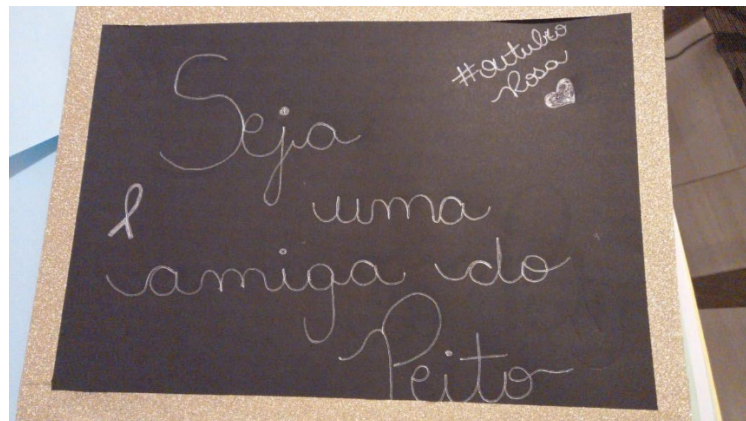 #outubro
Rosa
Seja
uma
amiga do
Peito